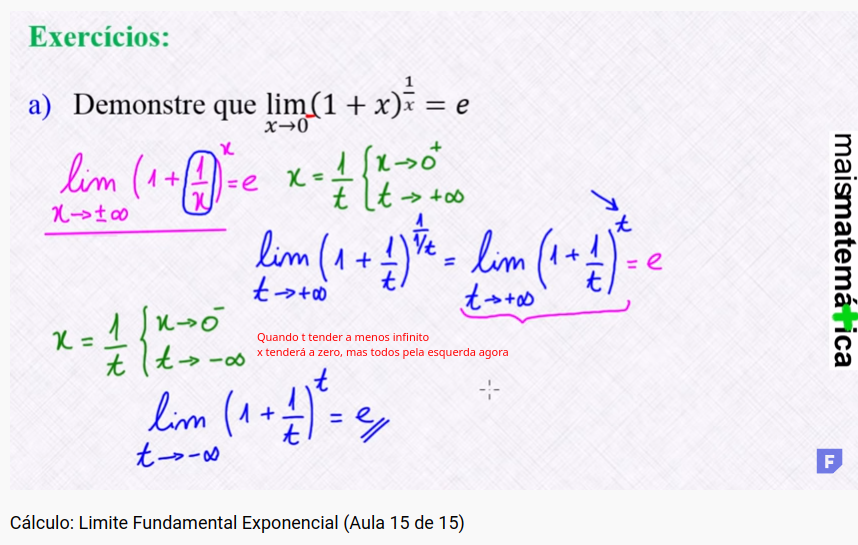 Exercícios:
a) Demonstre que lim x→0 (1 + x)^(1/x) = e
lim x→±∞ (1 + 1/x)^x = e
x = 1/t { x→0⁺
t→+∞
lim t→+∞ (1 + 1/t)^(1/(1/t)) = lim t→+∞ (1 + 1/t)^t = e
x = 1/t { x→0⁻
t→-∞
Quando t tender a menos infinito
x tenderá a zero, mas todos pela esquerda agora
lim t→-∞ (1 + 1/t)^t = e
maismatemática
F
Cálculo: Limite Fundamental Exponencial (Aula 15 de 15)